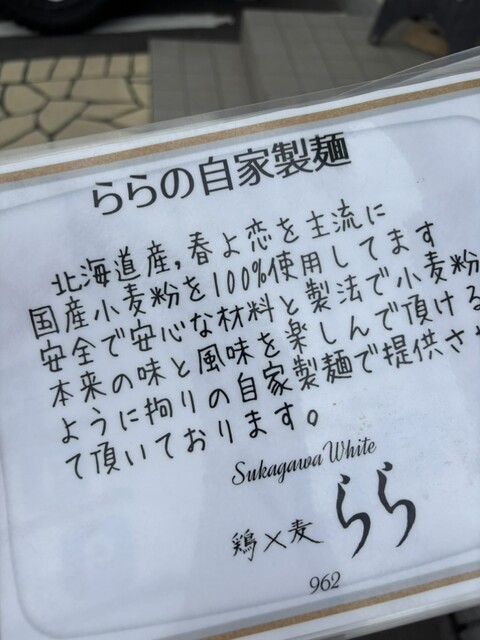 ららの自家製麺
北海道産,春よ恋を主流に
国産小麦粉を100%使用してます
安全で安心な材料と製法で小麦粉
本来の味と風味を楽しんで頂ける
ように拘りの自家製麺で提供さ
て頂いております。
Sukagawa White
鶏×麦 らら
962